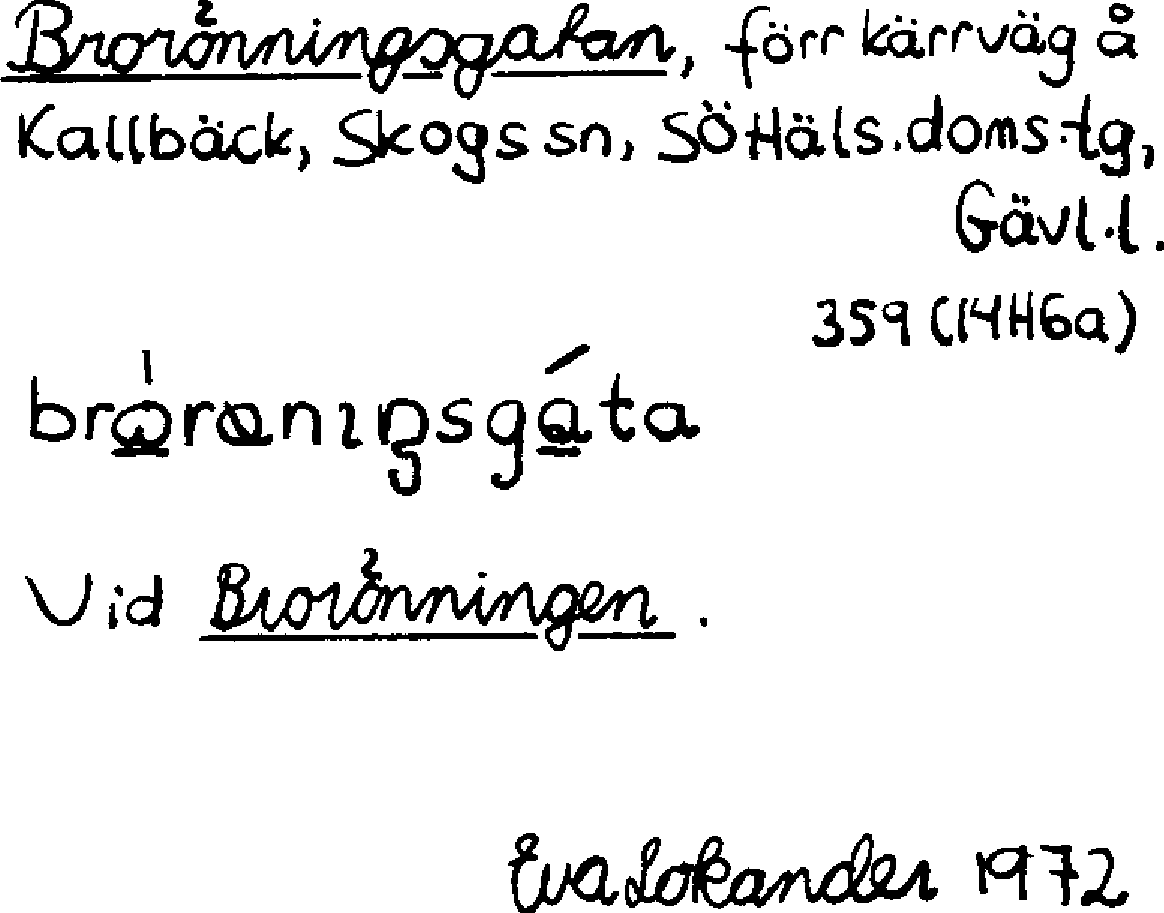 Brorönningsgatan, förr kärrväg å
Kallbäck, Skogs sn, SÖ Häls.doms.tg,
Gävl.l.
359 (14H6a)
Vid Brorönningen.
Eva Lokander 1972